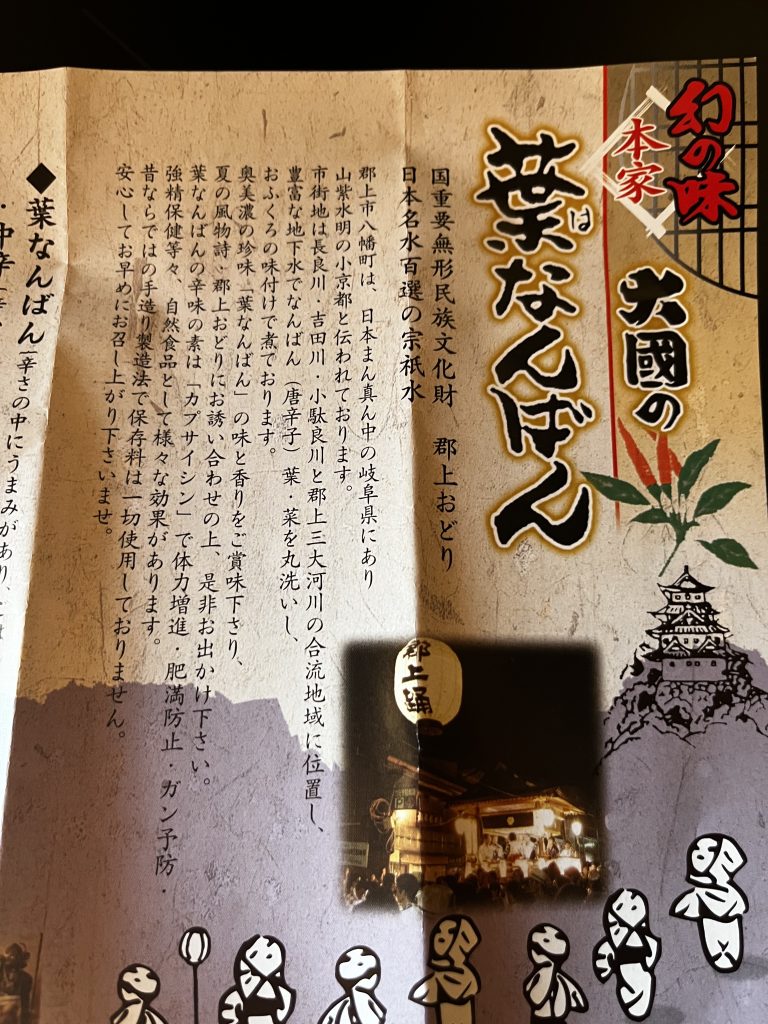 幻の味
本家
大國の
葉なんばん
は
国重要無形民族文化財　郡上おどり
日本名水百選の宗祇水
郡上市八幡町は、日本まん真ん中の岐阜県にあり
山紫水明の小京都と伝われております。
市街地は長良川・吉田川・小駄良川と郡上三大河川の合流地域に位置し、
豊富な地下水でなんばん（唐辛子）葉・菜を丸洗いし、
おふくろの味付けで煮ております。
奥美濃の珍味「葉なんばん」の味と香りをご賞味下さり、
夏の風物詩・郡上おどりにお誘い合わせの上、是非お出かけ下さい。
葉なんばんの辛味の素は「カプサイシン」で体力増進・肥満防止・ガン予防・
強精保健等々、自然食品として様々な効果があります。
昔ならではの手造り製造法で保存料は一切使用しておりません。
安心してお早めにお召し上がり下さいませ。
◆葉なんばん（辛さの中にうまみがあり、
・中辛
郡上踊